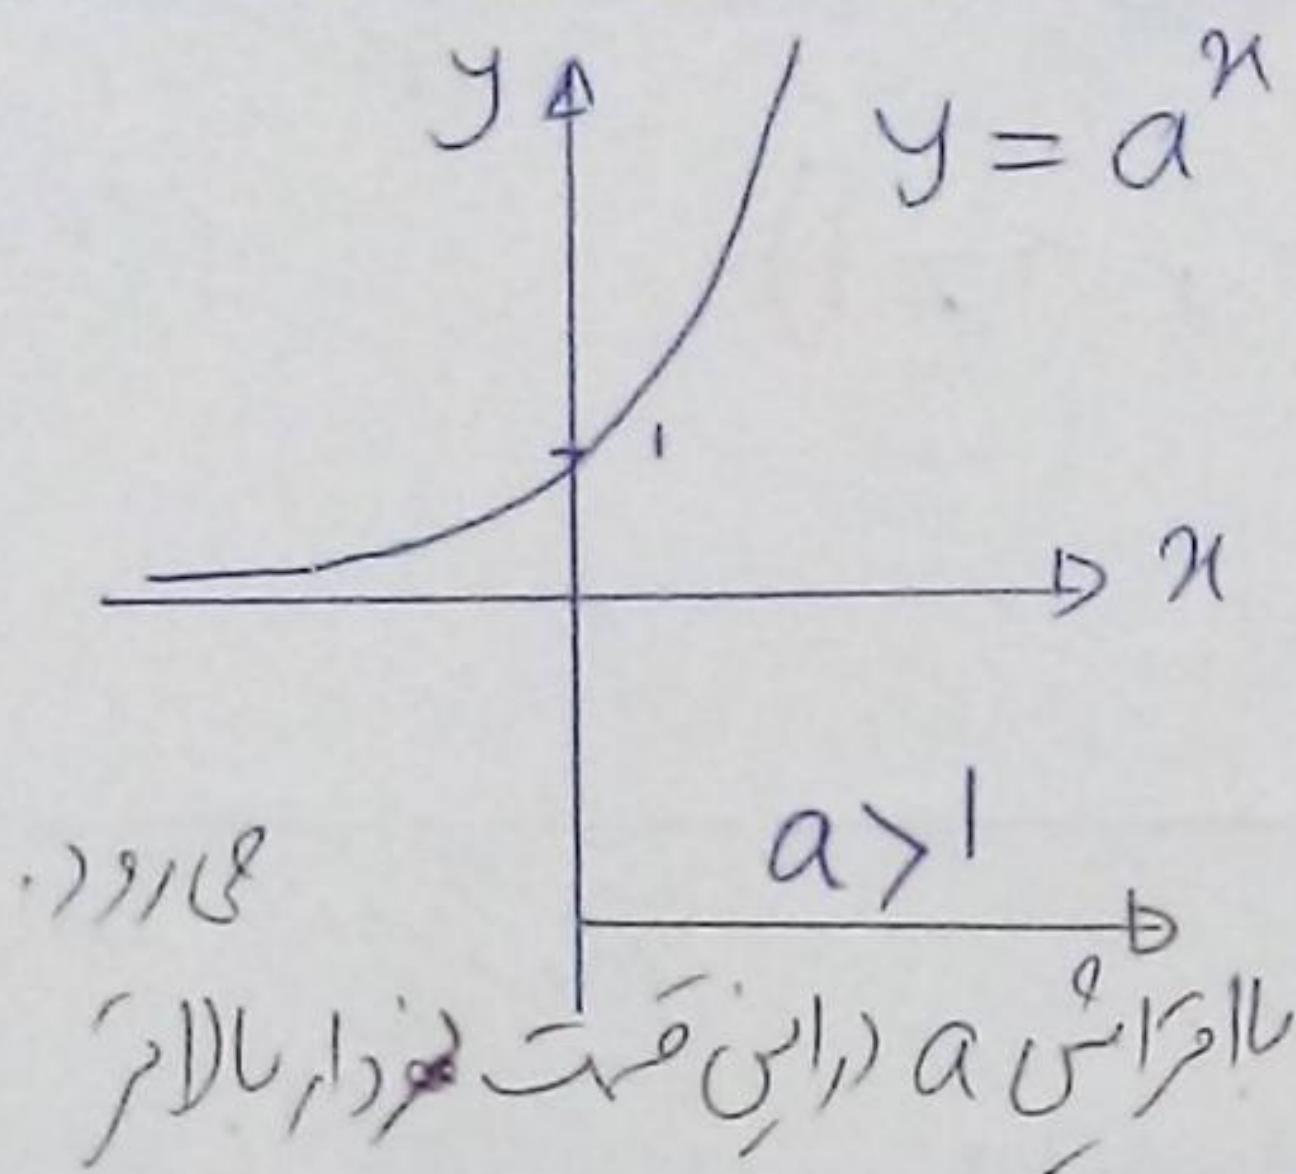 y
y = a^x
1
x
a > 1
با افزایش a در این قسمت نمودار بالاتر
می رود.